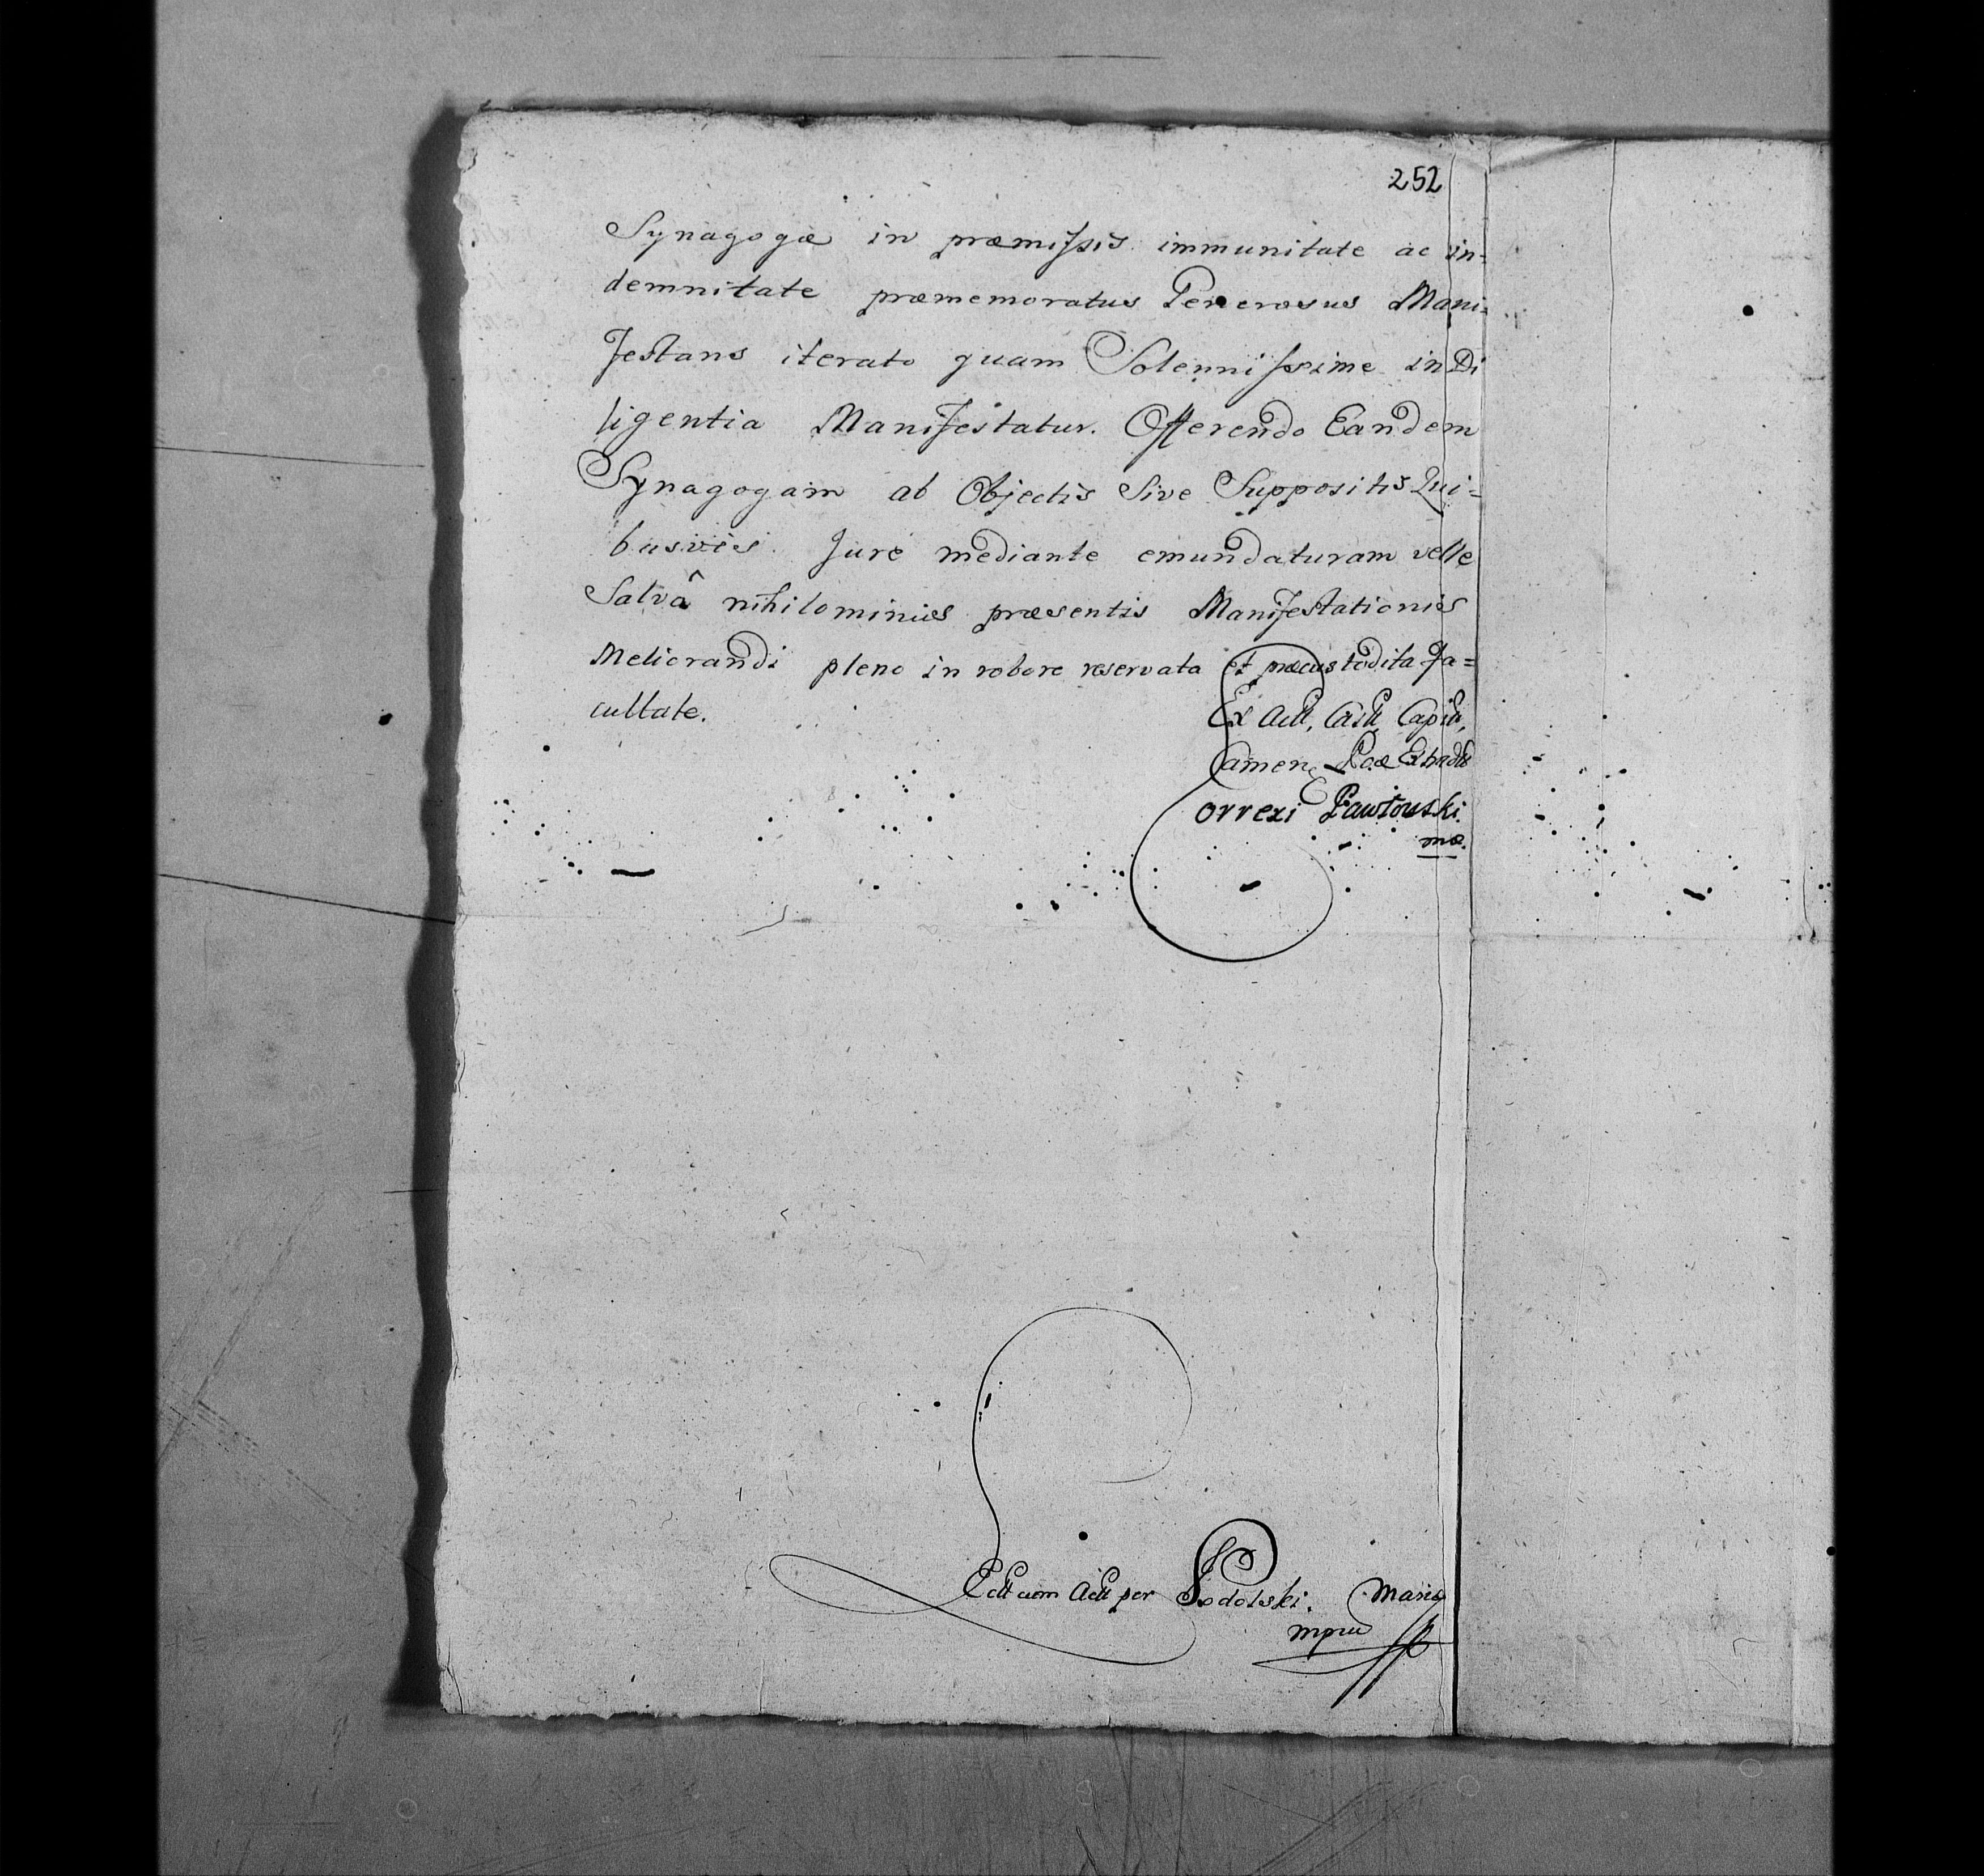 252
Synagogæ in præmissis immunitate ac in=
demnitate præmemoratus Generosus Mani=
festans iterato quam Solennissime in Di
ligentia Manifestatur. Offerendo Eandem
Synagogam ab Objectis Sive Suppositis Qui=
busvis Jure mediante emundaturam velle
Salvâ nihilominus præsentis Manifestationis
Meliorandi pleno in robore reservata et præcustodita Fa=
cultate.
Ex Actt, Castr, Capitt,
Camen, Poæ Extradit
Correxi Pawłouski.
mp.
Lect cum Actt per Podolski.
mpria